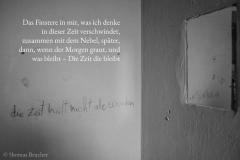 Das Finstere in mir, was ich denke
in dieser Zeit verschwindet,
zusammen mit dem Nebel, später,
dann, wenn der Morgen graut, und
was bleibt – Die Zeit die bleibt
die Zeit heilt nicht alle wunden
© Thomas Brucher